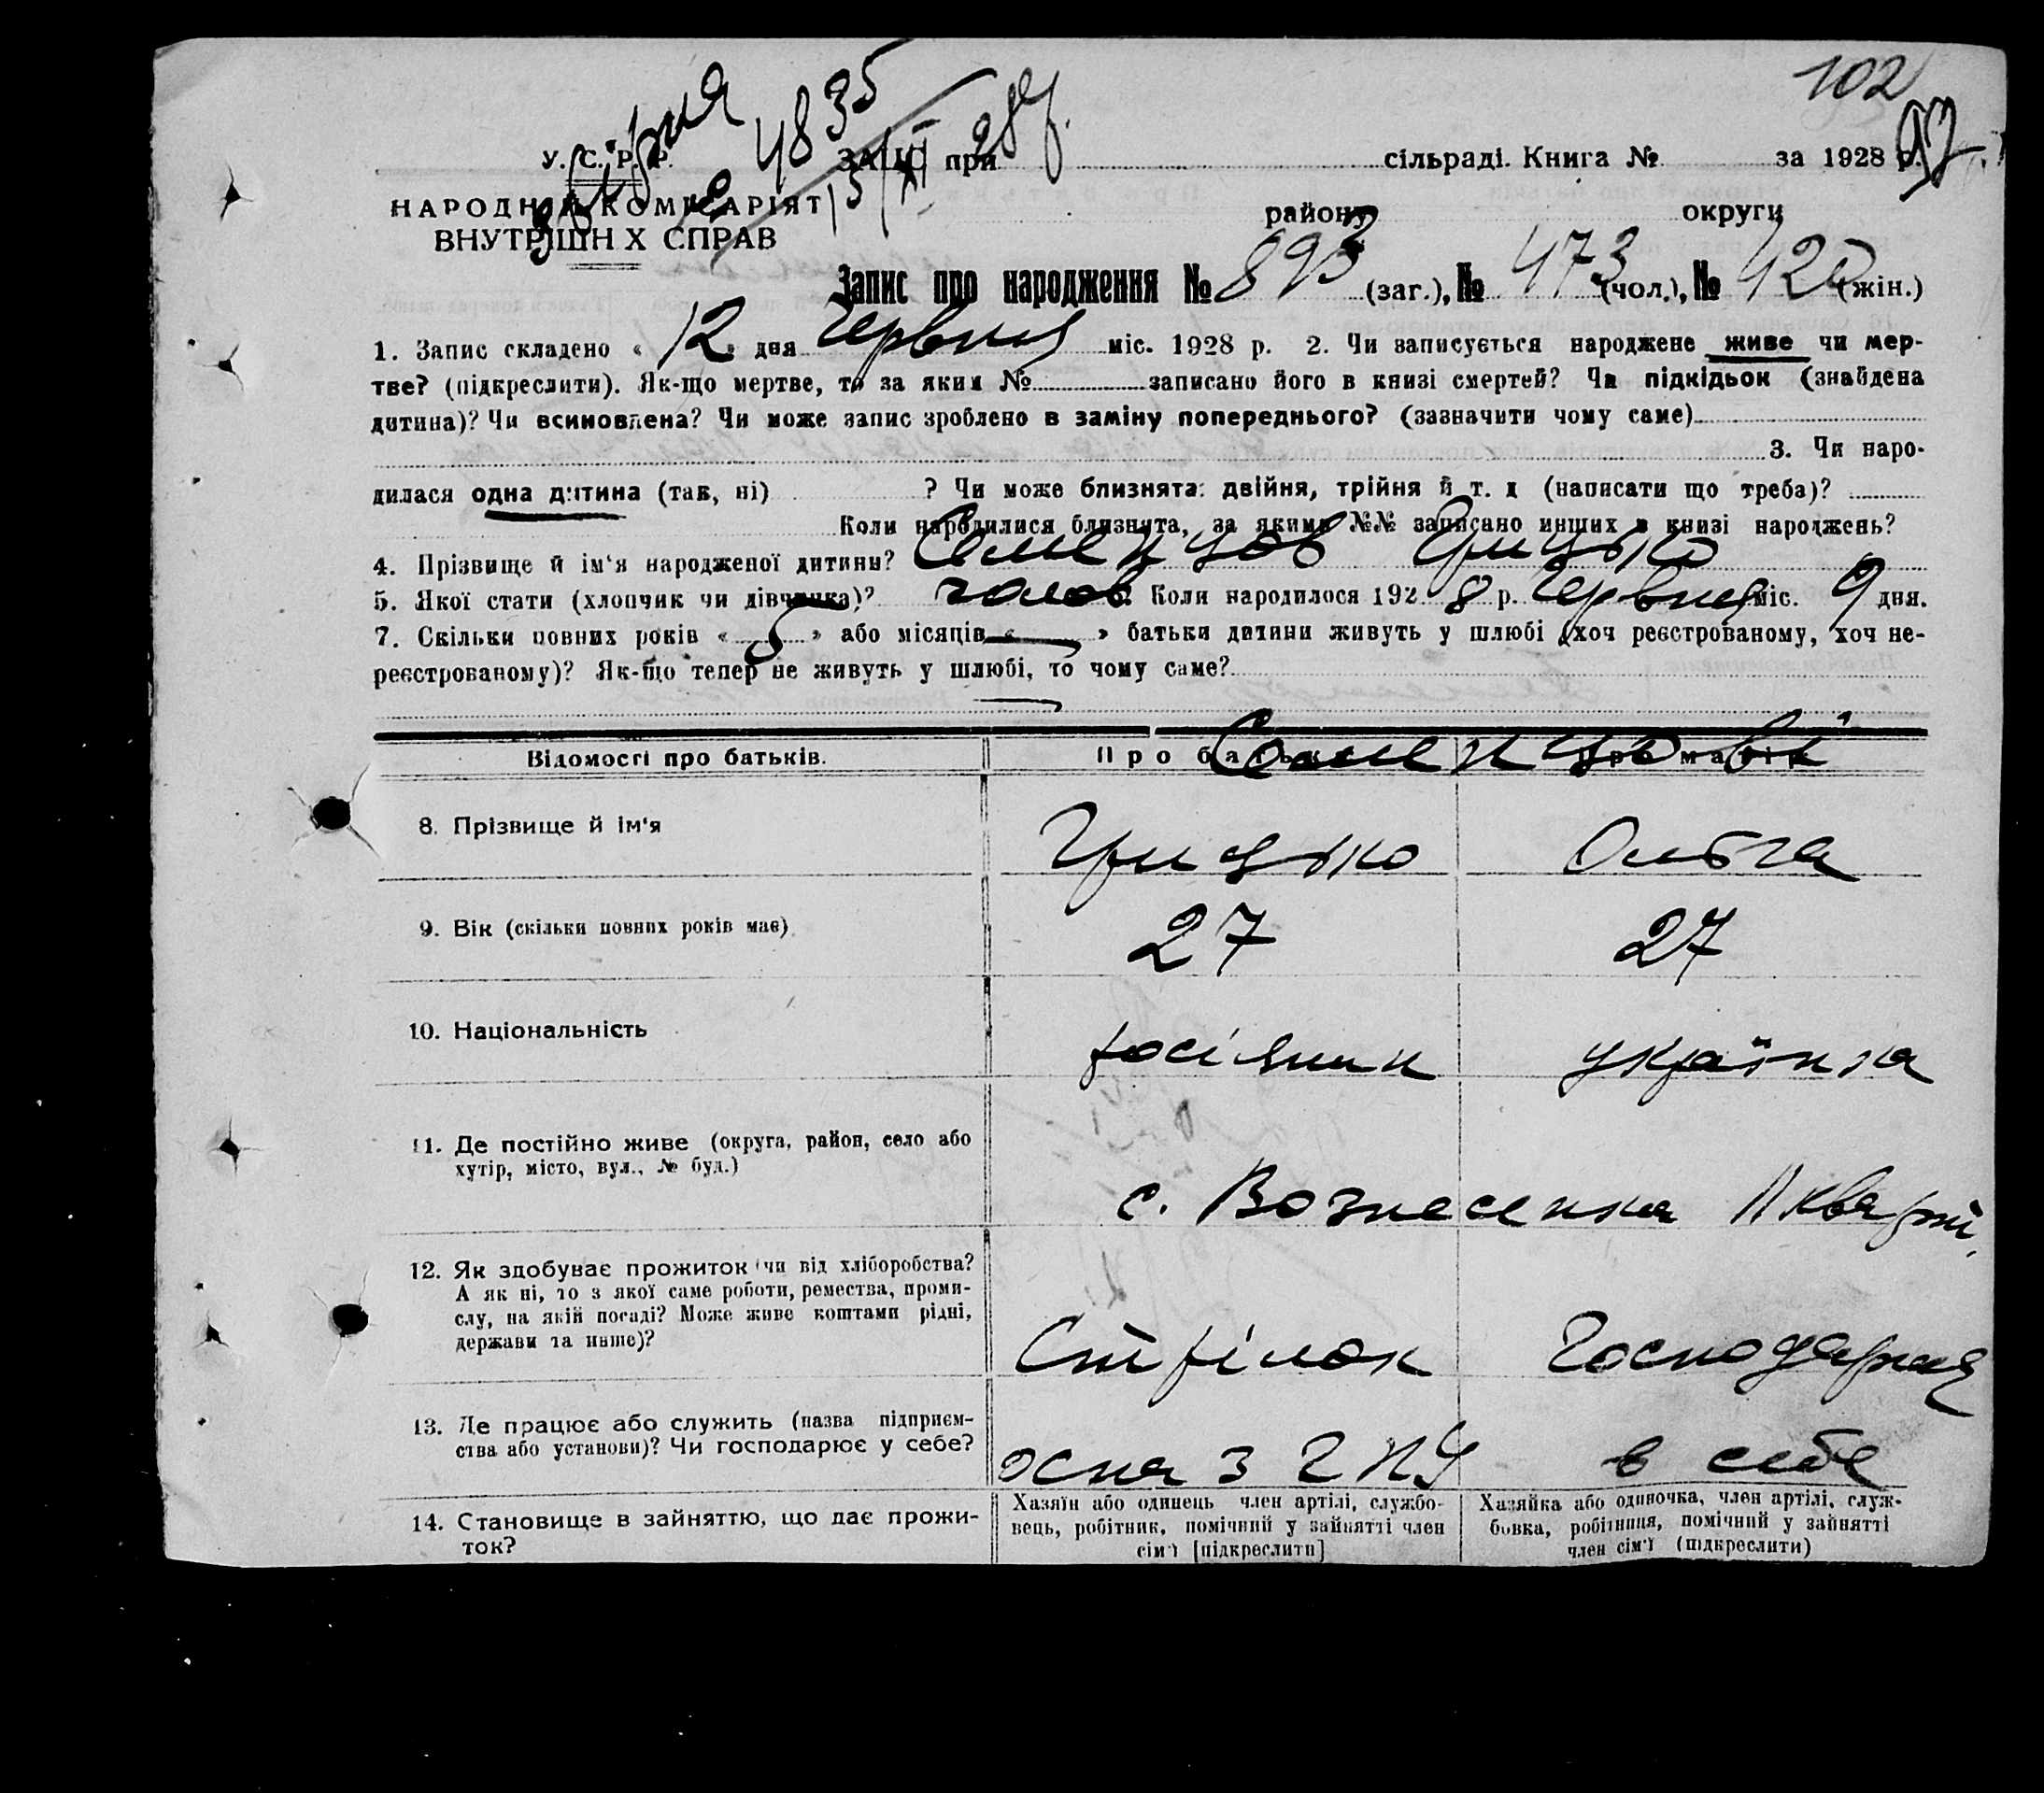 102
97
4835
15/XI 28р.
У. С. Р. Р. ЗАЦС при сільраді. Книга № за 1928 р.
НАРОДНІЙ КОМІСАРІЯТ району округи
ВНУТРІШН Х СПРАВ
Запис про народження № 893 (заг.), № 473 (чол.), № 420 (жін.)
1. Запис складено « 12 » дня Червня міс. 1928 р. 2. Чи записується народжене живе чи мер-
тве? (підкреслити). Як-що мертве, то за яким № записано його в книзі смертей? Чи підкідьок (знайдена
дитина)? Чи всиновлена? Чи може запис зроблено в заміну попереднього? (зазначити чому саме)
3. Чи наро-
дилася одна дитина (так, ні) ? Чи може близнята: двійня, трійня й т. д (написати що треба)?
Коли народилися близнята, за якими №№ записано инших в книзі народжень?
4. Прізвище й ім'я народженої дитини? Семенцов Грицько
5. Якої стати (хлопчик чи дівчинка)? чолов. Коли народилося 1928 р. Червня міс. 9 дня.
7. Скільки повних років « 5 » або місяців « — » батьки дитини живуть у шлюбі (хоч реєстрованому, хоч не-
реєстрованому)? Як-що тепер не живуть у шлюбі, то чому саме?
—
Відомості про батьків. Про батька Про матір
Семенцови
8. Прізвище й ім'я Грицько Ольга
9. Вік (скільки повних років має) 27 27
10. Національність росіянин українка
11. Де постійно живе (округа, район, село або
хутір, місто, вул., № буд.)
с. Вознесенка II кварт.
12. Як здобуває прожиток чи від хліборобства?
А як ні, то з якої саме роботи, ремества, проми-
слу, на якій посаді? Може живе коштами рідні,
держави та инше)?
Стрілок Господарня
13. Де працює або служить (назва підприєм-
ства або установи)? Чи господарює у себе?
осна з Г П У в себе
14. Становище в зайняттю, що дає прожи-
ток?
Хазяїн або одинець член артілі, службо-
вець, робітник, помічний у зайнятті член
сім'ї [підкреслити]
Хазяйка або одиночка, член артілі, служ-
бовка, робітниця, помічний у зайнятті
член сім'ї (підкреслити)